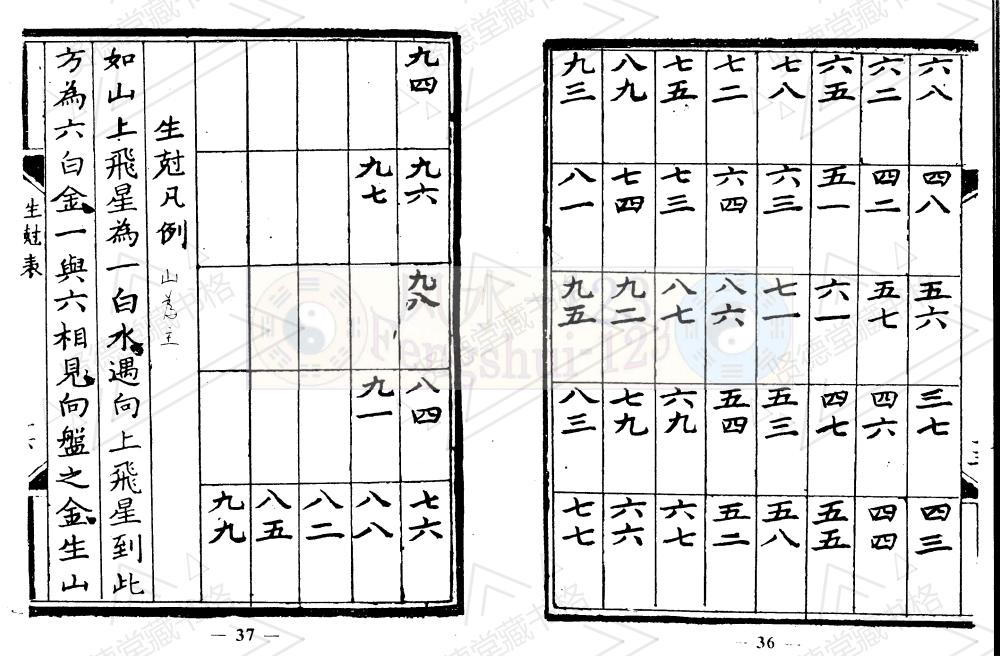 六八 四八 五六 三七 四三
六二 四二 五七 四六 四四
六五 五一 六一 四七 五五
七八 六三 七一 五三 五八
七二 六四 八六 五四 五二
七五 七三 八七 六九 六七
八九 七四 九二 七九 六六
九三 八一 九五 八三 七七
— 36 —
九四 九六 九八 八四 七六
九七 九一 八八
八二
八五
九九
生尅凡例 山為主
如山上飛星為一白水遇向上飛星到此
方為六白金一與六相見向盤之金生山
生尅表
一六
— 37 —
Fengshui-123